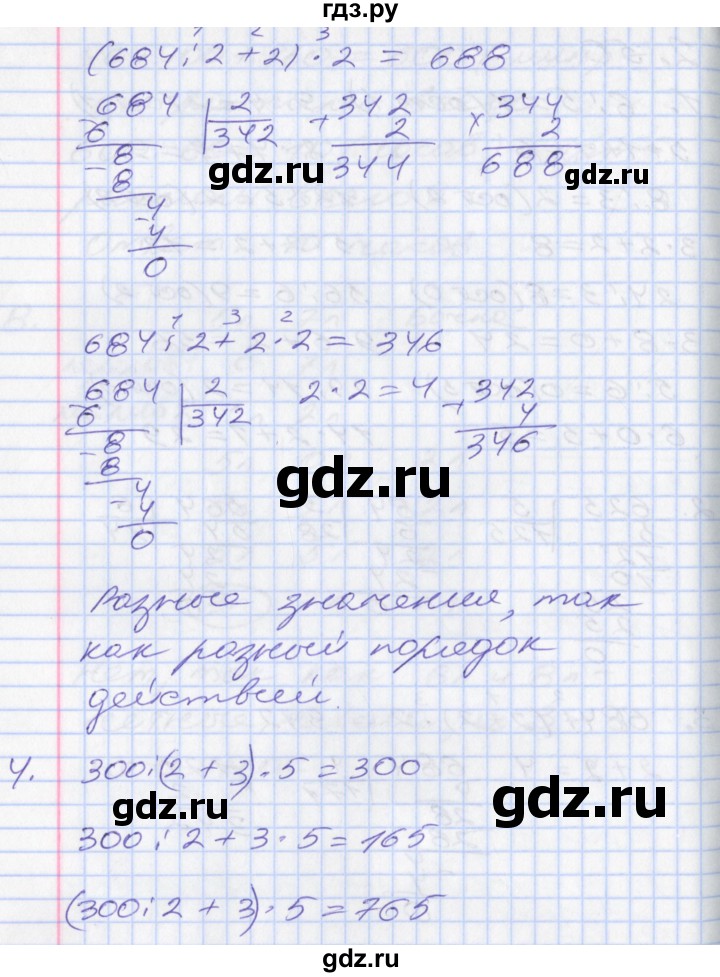 гдз.ру
1 2 3
(684 : 2 + 2) · 2 = 688
684 | 2 + 342 × 344
6 342 2 2
- 8 344 688
8
4
- 4
0
gdz.ru
gdz.ru
1 3 2
684 : 2 + 2 · 2 = 346
- 684 | 2 2 · 2 = 4 + 342
6 342 4
- 8 346
8
- 4
4
0
gdz.ru
Разные значения, так
как разный порядок
действий.
4. 300 : (2 + 3) · 5 = 300
gdz.ru
gdz.ru
300 : 2 + 3 · 5 = 165
(300 : 2 + 3) · 5 = 765
gdz.ru